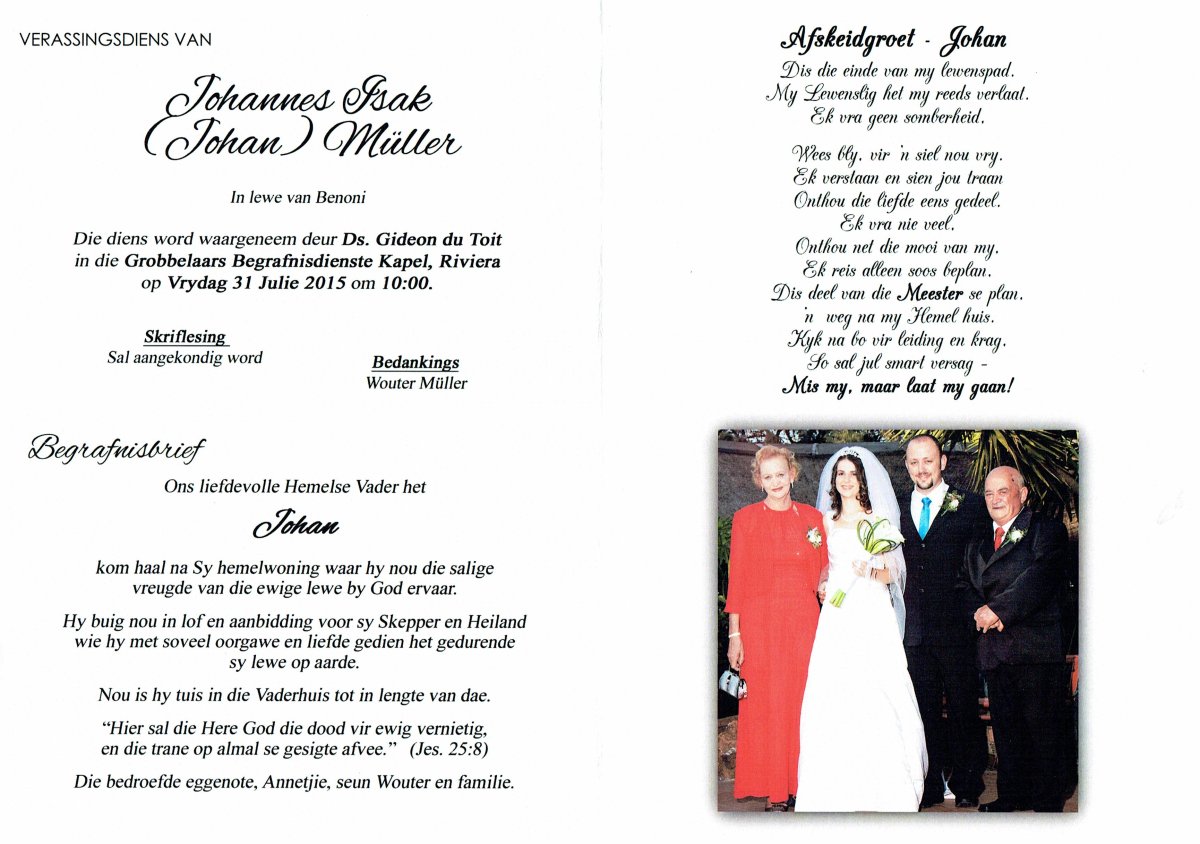 VERASSINGSDIENS VAN
Johannes Isak
(Johan) Müller
In lewe van Benoni
Die diens word waargeneem deur Ds. Gideon du Toit
in die Grobbelaars Begrafnisdienste Kapel, Riviera
op Vrydag 31 Julie 2015 om 10:00.
Skriflesing
Sal aangekondig word
Bedankings
Wouter Müller
Begrafnisbrief
Ons liefdevolle Hemelse Vader het
Johan
kom haal na Sy hemelwoning waar hy nou die salige
vreugde van die ewige lewe by God ervaar.
Hy buig nou in lof en aanbidding voor sy Skepper en Heiland
wie hy met soveel oorgawe en liefde gedien het gedurende
sy lewe op aarde.
Nou is hy tuis in die Vaderhuis tot in lengte van dae.
“Hier sal die Here God die dood vir ewig vernietig,
en die trane op almal se gesigte afvee.” (Jes. 25:8)
Die bedroefde eggenote, Annetjie, seun Wouter en familie.
Afskeidgroet - Johan
Dis die einde van my lewenspad.
My Lewenslig het my reeds verlaat.
Ek vra geen somberheid,
Wees bly, vir 'n siel nou vry.
Ek verstaan en sien jou traan
Onthou die liefde eens gedeel.
Ek vra nie veel,
Onthou net die mooi van my.
Ek reis alleen soos beplan,
Dis deel van die Meester se plan,
'n weg na my Hemel huis.
Kyk na bo vir leiding en krag,
So sal jul smart versag -
Mis my, maar laat my gaan!